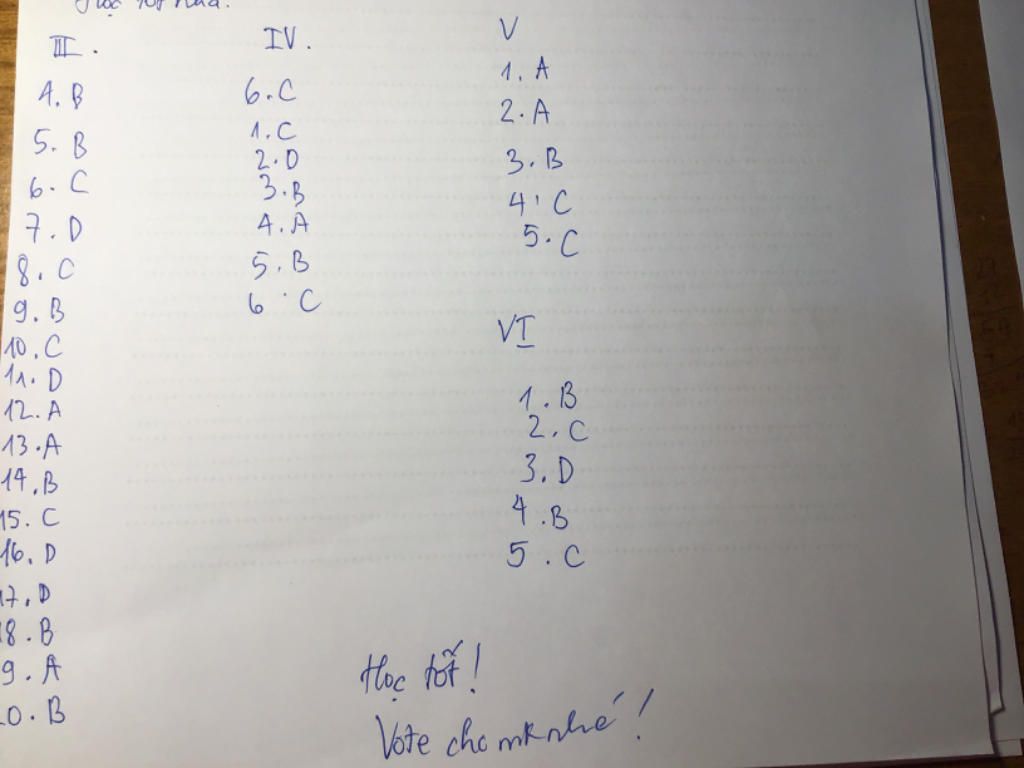 Học tốt nha.
III.
4. B
5. B
6. C
7. D
8. C
9. B
10. C
11. D
12. A
13. A
14. B
15. C
16. D
17. D
18. B
9. A
0. B
IV.
6. C
1. C
2. D
3. B
4. A
5. B
6. C
V
1. A
2. A
3. B
4. C
5. C
VI
1. B
2. C
3. D
4. B
5. C
Học tốt!
Vote cho mk nhé!